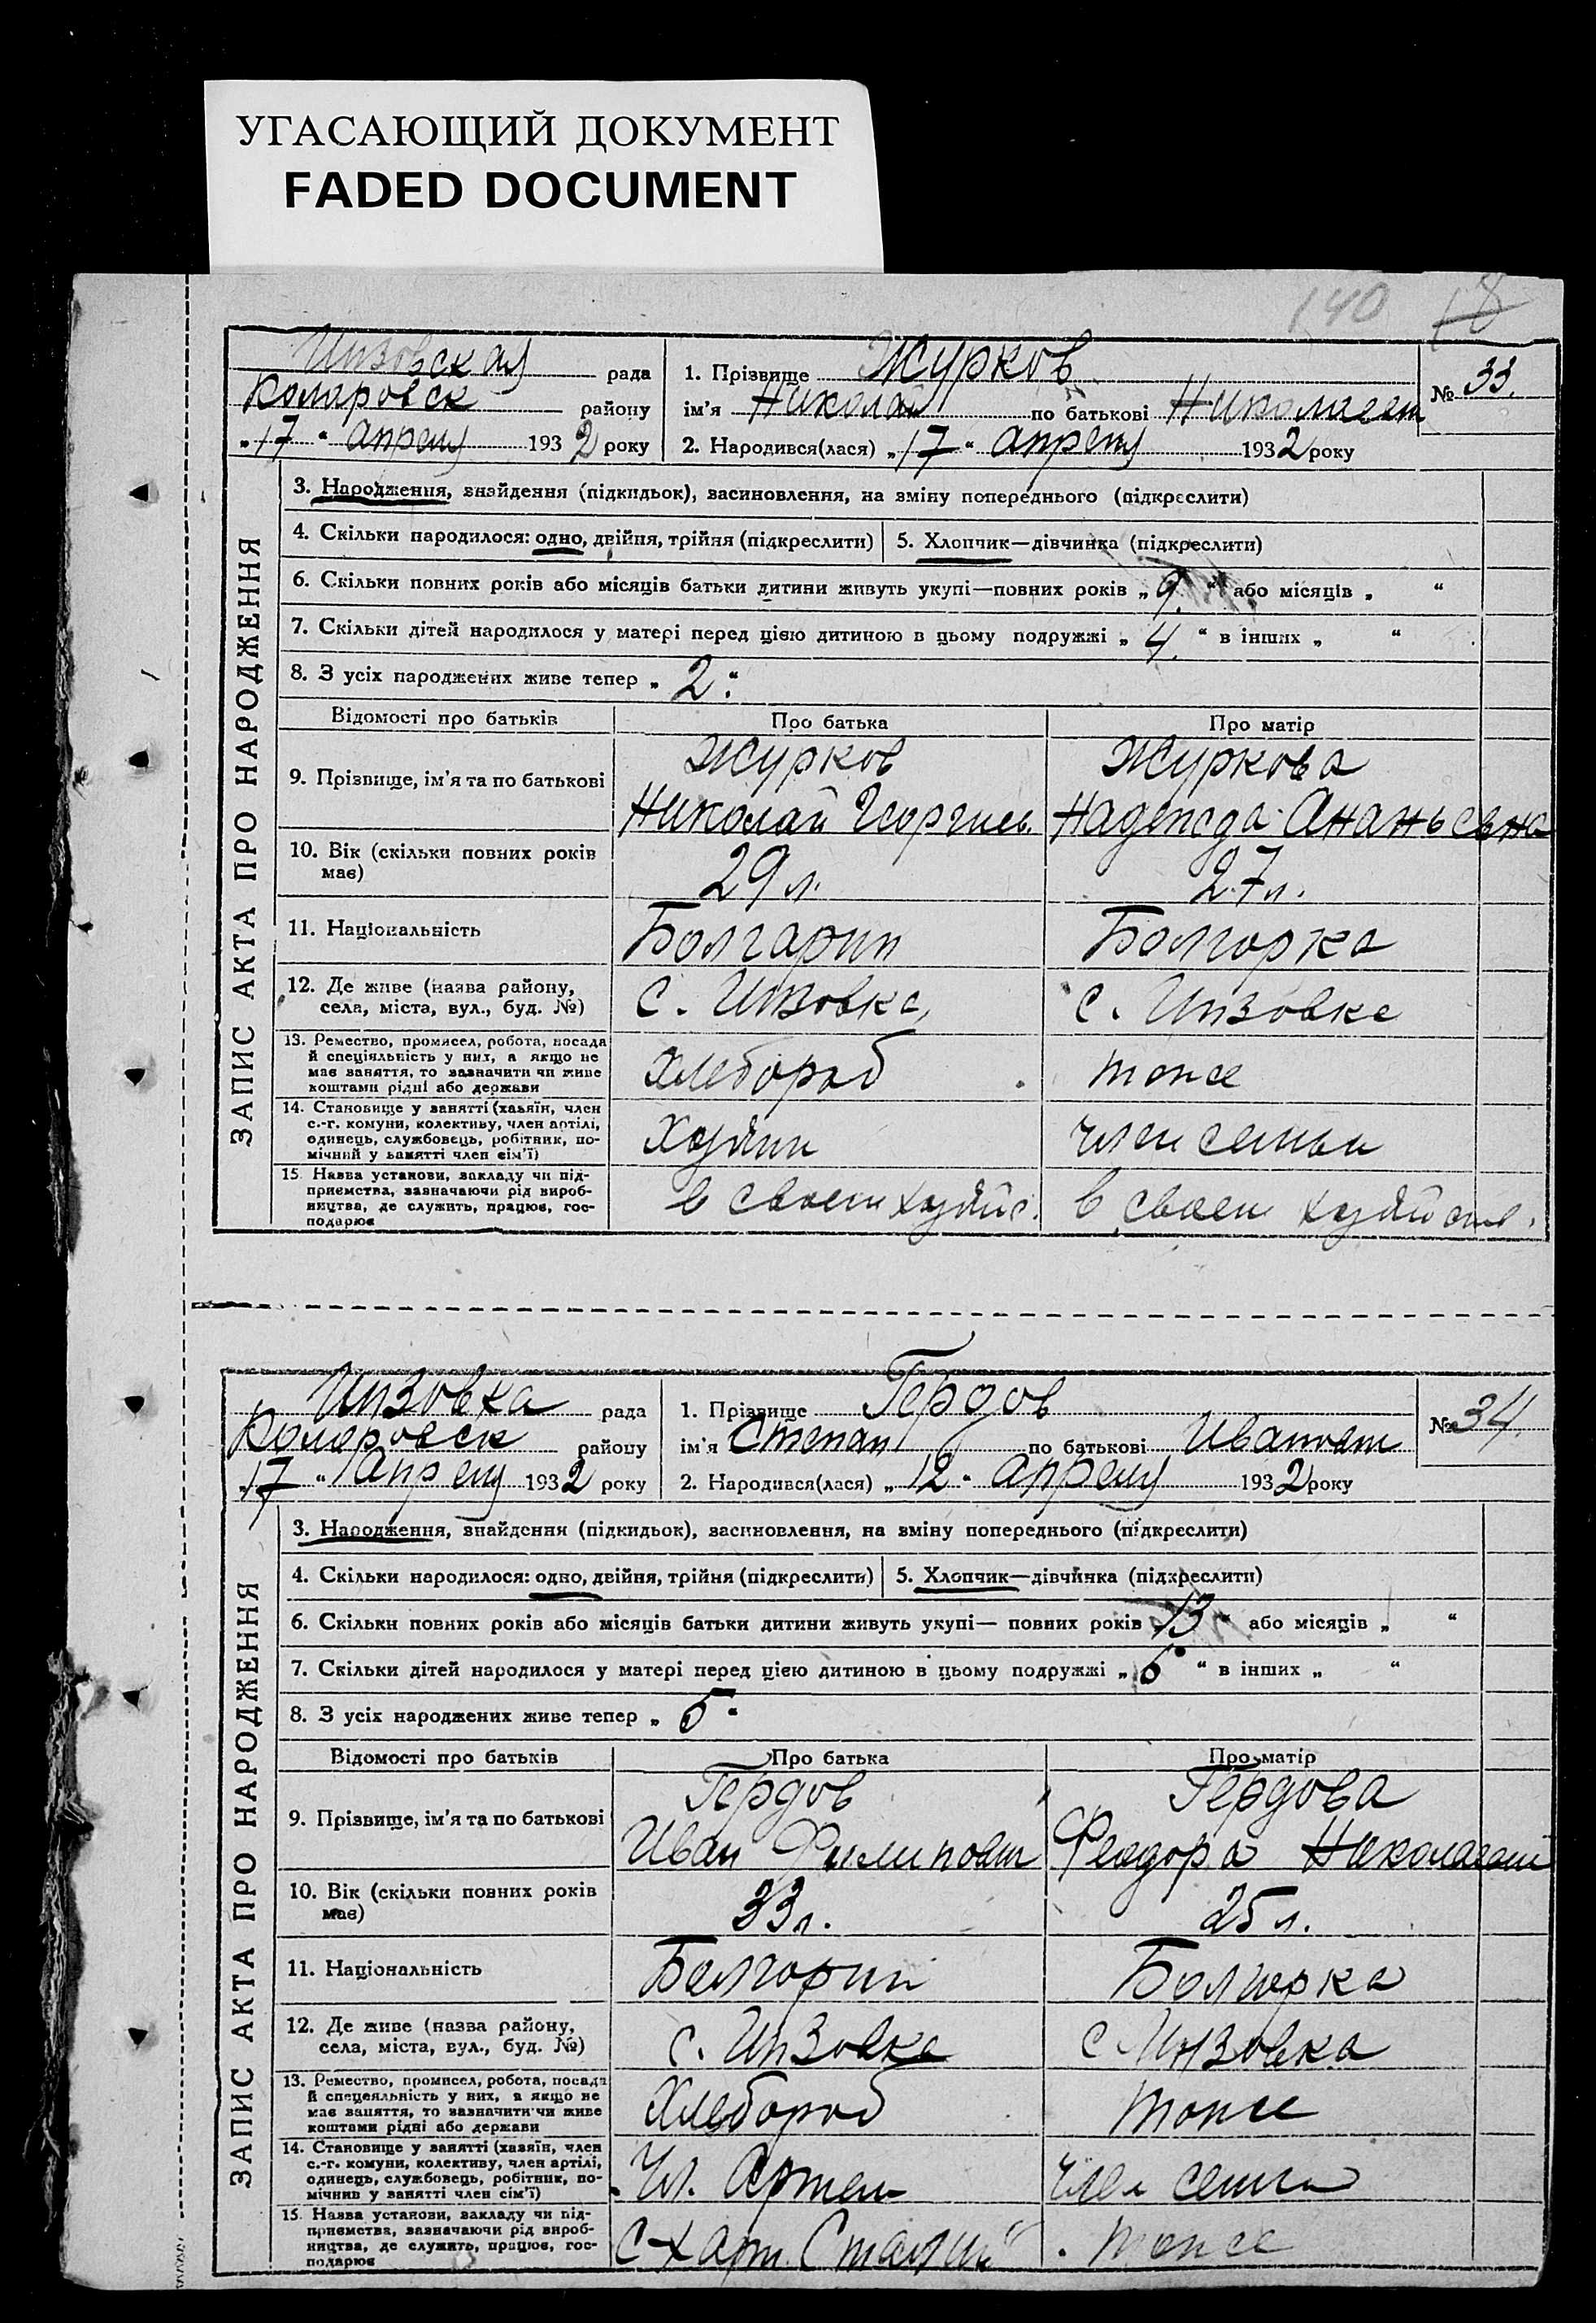 УГАСАЮЩИЙ ДОКУМЕНТ
FADED DOCUMENT
140 18
Инзовская рада
Коларовск району
„17“ апреля 1932 року
1. Прізвище Журков
ім'я Николай по батькові Николаевич
2. Народився(лася) „17“ апреля 1932 року
№ 33.
ЗАПИС АКТА ПРО НАРОДЖЕННЯ
3. Народження, знайдення (підкидьок), засиновлення, на зміну попереднього (підкреслити)
4. Скільки народилося: одно, двійня, трійня (підкреслити)
5. Хлопчик—дівчинка (підкреслити)
6. Скільки повних років або місяців батьки дитини живуть укупі—повних років „9.“ або місяців „ “
7. Скільки дітей народилося у матері перед цією дитиною в цьому подружжі „4.“ в інших „ “
8. З усіх народжених живе тепер „2“
Відомості про батьків Про батька Про матір
9. Прізвище, ім'я та по батькові
Журков
Николай Георгиев.
Журкова
Надежда Ананьевна
10. Вік (скільки повних років
має)
29 л. 27 л.
11. Національність Болгарин Болгарка
12. Де живе (назва району,
села, міста, вул., буд. №)
с. Инзовка, с. Инзовка
13. Ремество, промисел, робота, посада
й спеціяльність у них, а якщо не
має заняття, то зазначити чи живе
коштами рідні або держави
Хлебороб тоже
14. Становище у занятті (хазяїн, член
с.-г. комуни, колективу, член артілі,
одинець, службовець, робітник, по-
мічний у занятті член сім'ї)
Хозяин член семьи
15. Назва установи, закладу чи під-
приємства, зазначаючи рід вироб-
ництва, де служить, працює, гос-
подарює
в своем хозяйс. в своем хозяйств.
Инзовка рада
Коларовск району
„17“ Апреля 1932 року
1. Прізвище Гердов
ім'я Степан по батькові Иванович
2. Народився(лася) „12“ апреля 1932 року
№ 34.
ЗАПИС АКТА ПРО НАРОДЖЕННЯ
3. Народження, знайдення (підкидьок), засиновлення, на зміну попереднього (підкреслити)
4. Скільки народилося: одно, двійня, трійня (підкреслити)
5. Хлопчик—дівчинка (підкреслити)
6. Скільки повних років або місяців батьки дитини живуть укупі— повних років „13“ або місяців „ “
7. Скільки дітей народилося у матері перед цією дитиною в цьому подружжі „ “ в інших „ “
8. З усіх народжених живе тепер „5“
Відомості про батьків Про батька Про матір
9. Прізвище, ім'я та по батькові
Гердов
Иван Филипович
Гердова
Феодора
10. Вік (скільки повних років
має)
33 л. 25 л.
11. Національність Болгарин Болгарка
12. Де живе (назва району,
села, міста, вул., буд. №)
с. Инзовка с Инзовка
13. Ремество, промисел, робота, посада
й спецеяльність у них, а якщо не
має заняття, то зазначити чи живе
коштами рідні або держави
Хлебороб тоже
14. Становище у занятті (хазяїн, член
с.-г. комуни, колективу, член артілі,
одинець, службовець, робітник, по-
мічний у занятті член сім'ї)
Чл. Артели член семьи
15. Назва установи, закладу чи під-
приємства, зазначаючи рід вироб-
ництва, де служить, працює, гос-
подарює
С-Х арт. Сталин" тоже